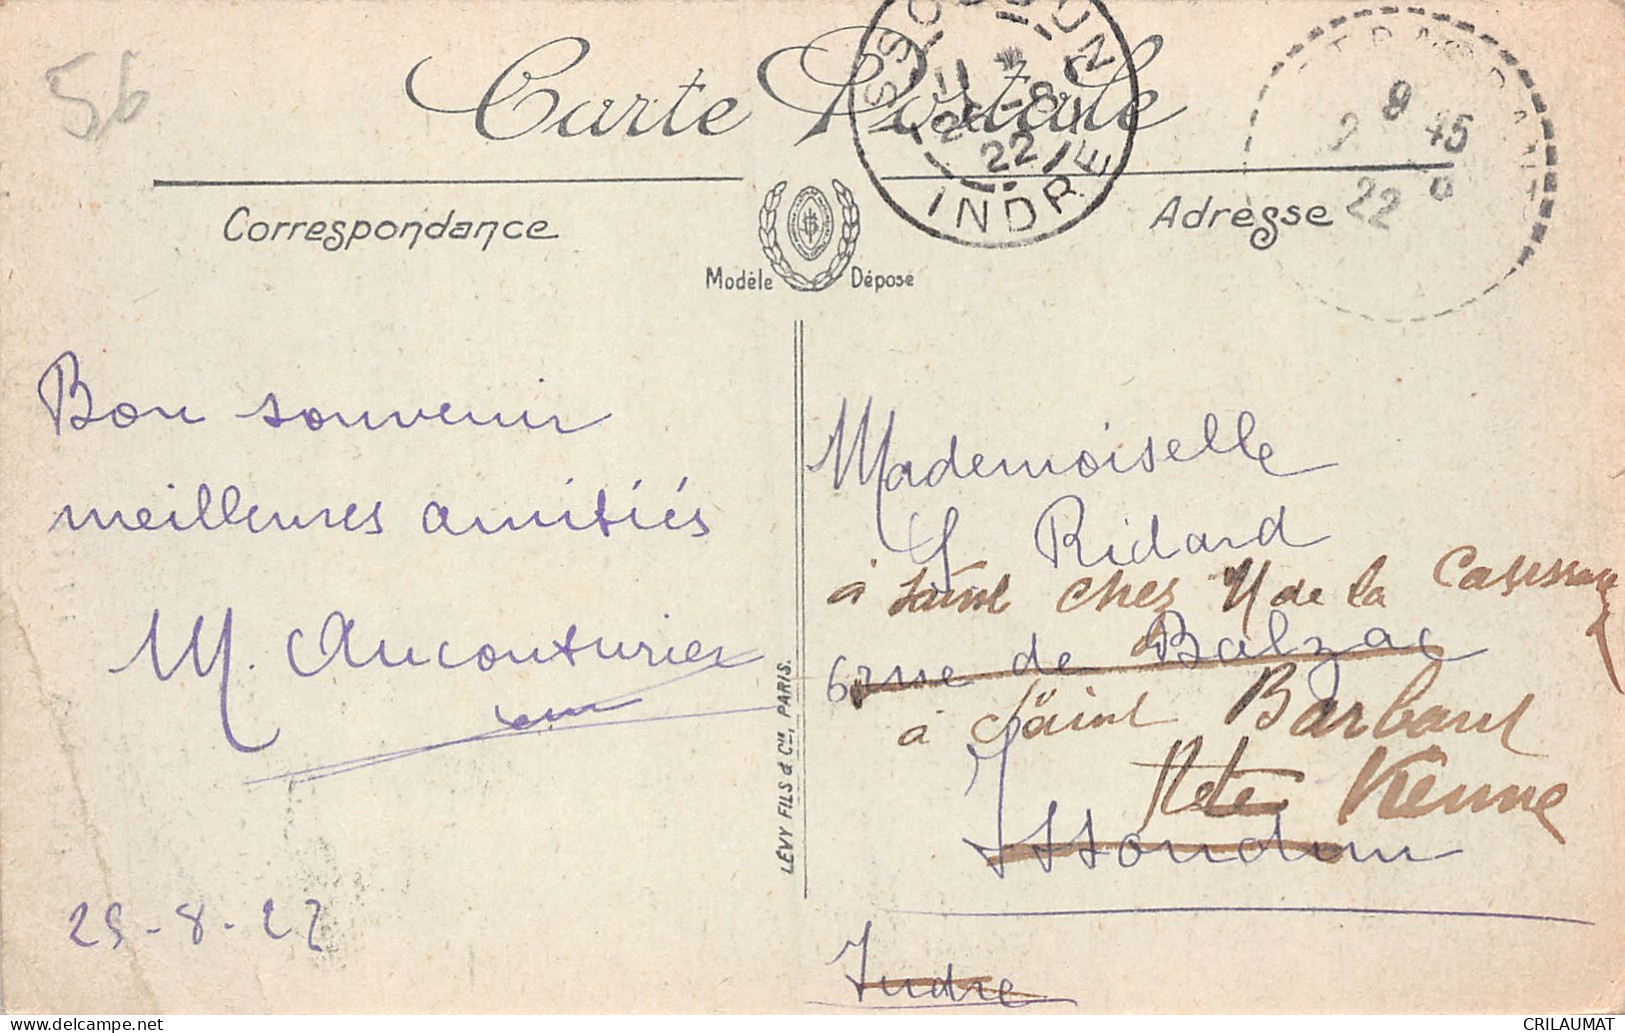 56
Carte Postale
ISSOUDUN
INDRE
22
9 15
22 8
Correspondance
Adresse
Modèle Déposé
Bon souvenir
meilleures amitiés
M. Aucouturier
25-8-22
LÉVY FILS & Cie, PARIS.
Mademoiselle
Y Ridard
à Saint chez M de la
6 rue de Balzac
à Saint Barbant
Hte Vienne
Issoudun
Indre
CRILAUMAT